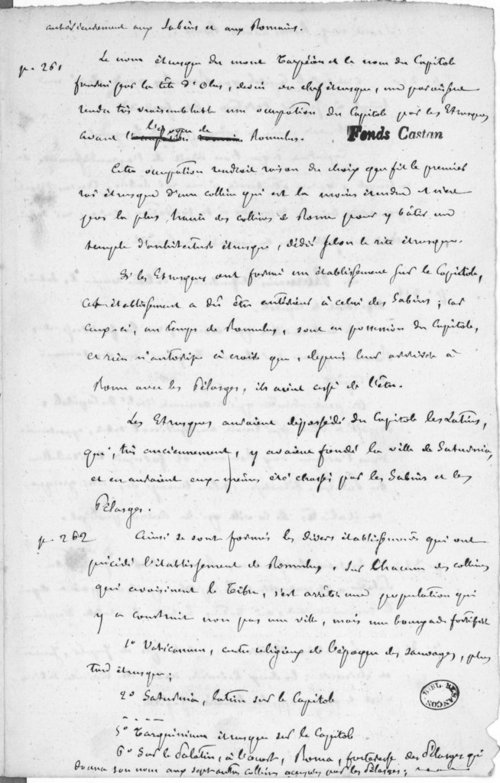 antérieurement aux Sabins et aux Romains.
p. 261
Le nom étrusque du mont Tarpéien et le nom du Capitole
fourni par la tête d'Olus, devin ou chef étrusque, me paraissent
rendre très vraisemblable une occupation du Capitole par les Etrusques
avant l'époque de Romulus.
Fonds Castan
Cette occupation rendrait raison du choix que fit le premier
roi étrusque d'une colline qui est la moins étendue et n'est
pas la plus élevée des collines de Rome pour y bâtir un
temple d'architecture étrusque, dédié selon le rite étrusque.
Si les Etrusques ont formé un établissement sur le Capitole,
cet établissement a dû être antérieur à celui des Sabins ; car
ceux-ci, au temps de Romulus, sont en possession du Capitole,
et rien n'autorise à croire que, depuis leur arrivée à
Rome avec les Pélasges, ils aient cessé de l'être.
Les Etrusques auraient dépossédé du Capitole les Latins,
qui, très anciennement, y avaient fondé la ville de Saturnia,
et en auraient eux-mêmes été chassés par les Sabins et les
Pélasges.
p. 262
Ainsi se sont formés les divers établissements qui ont
précédé l'établissement de Romulus. Sur chacune des collines
qui avoisinent le Tibre, s'est arrêtée une population qui
y a construit non pas une ville, mais une bourgade fortifiée
1° Vaticanum, centre religieux de l'époque des sauvages, plus
tard étrusque ;
2° Saturnia, latine sur le Capitole
BIBL. BESANÇON
5° Tarquinium étrusque sur le Capitole
6° Sur le Palatin, à l'ouest, Roma, forteresse des Pélasges qui
donna son nom aux sept autres collines occupées par les Pélasges ;